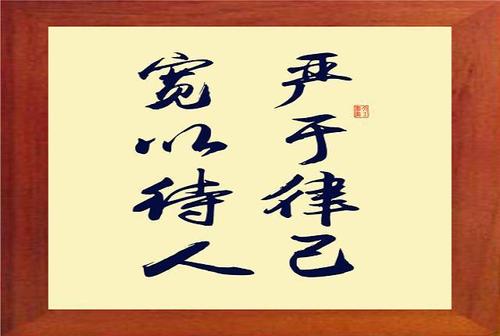 严于律己
宽以待人